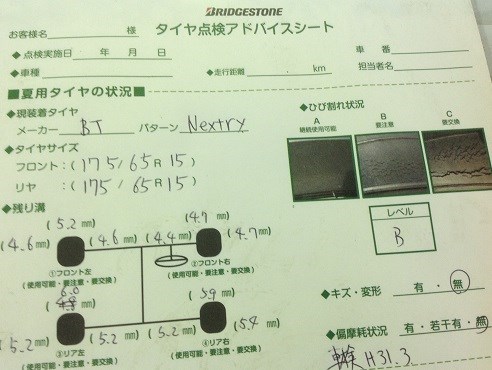 BRIDGESTONE
お客様名 様 タイヤ点検アドバイスシート
◆点検実施日 年 月 日 車番
◆車種 ◆走行距離 . km 担当者名
■夏用タイヤの状況■
◆現装着タイヤ ◆ひび割れ状況
メーカー BT パターン Nextry
A B C
継続使用可能 要注意 要交換
◆タイヤサイズ
フロント:(175/65R15)
リヤ:(175/65R15)
◆残り溝
(5.2mm) (4.7mm)
(4.6mm) (4.6mm) (4.4mm) (4.7mm)
レベル
B
①フロント左 ②フロント右
(使用可能・要注意・要交換) (使用可能・要注意・要交換)
◆キズ・変形 有・無
6.0 (5.9mm)
(5.2mm) (5.2mm) (5.2mm) (5.4mm)
◆偏摩耗状況 有・若干有・無
③リア左 ④リア右
(使用可能・要注意・要交換) (使用可能・要注意・要交換)
車検 H31.3